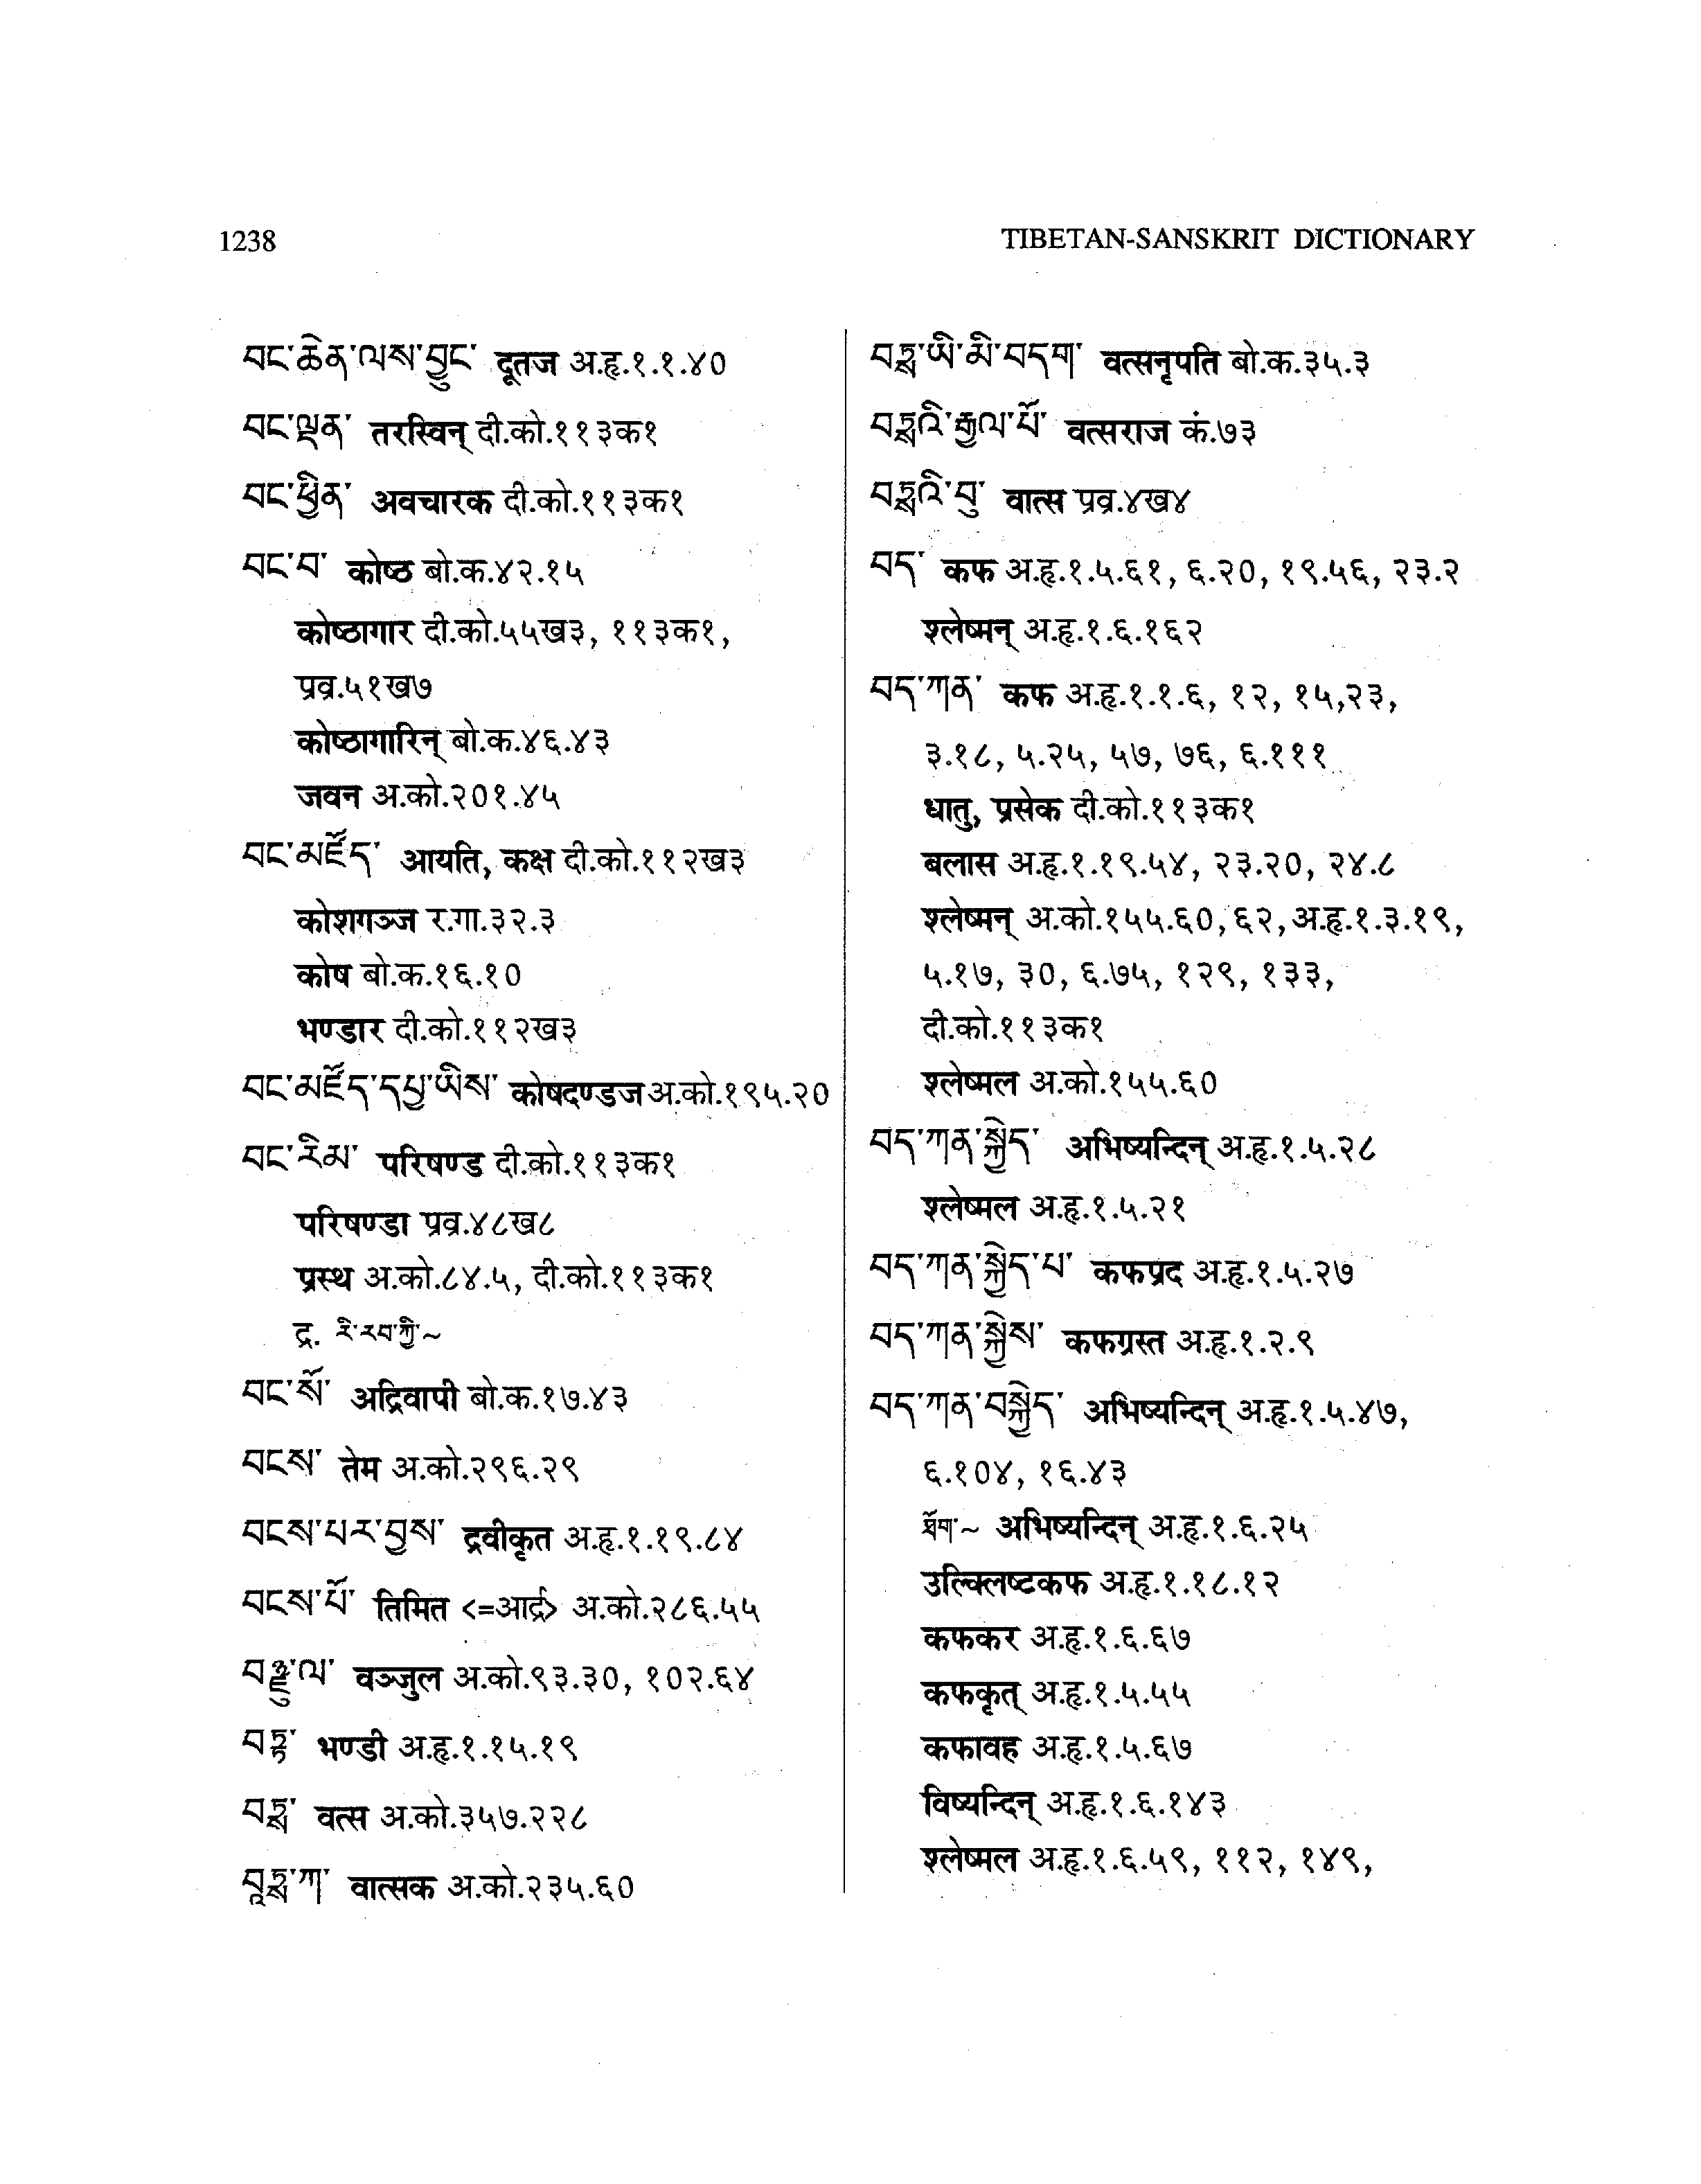 1238
TIBETAN-SANSKRIT DICTIONARY
བང་ཆེན་ལས་བྱུང་ दूतज अ.हृ.१.१.४०
བང་ལྡན་ तरस्विन् दी.को.११३क१
བང་ཕྱིན་ अवचारक दी.को.११३क१
བང་བ་ कोष्ठ बो.क.४२.१५
कोष्ठागार दी.को.५५ख३, ११३क१,
प्रव्र.५१ख७
कोष्ठागारिन् बो.क.४६.४३
जवन अ.को.२०१.४५
བང་མཛོད་ आयति, कक्ष दी.को.११२ख३
कोशगञ्ज र.गा.३२.३
कोष बो.क.१६.१०
भण्डार दी.को.११२ख३
བང་མཛོད་དཔྱ་ཡིས་ कोषदण्डज अ.को.१९५.२०
བང་རིམ་ परिषण्ड दी.को.११३क१
परिषण्डा प्रव्र.४८ख८
प्रस्थ अ.को.८४.५, दी.को.११३क१
द्र. རི་རབ་ཀྱི་~
བང་སོ་ अद्रिवापी बो.क.१७.४३
བངས་ तेम अ.को.२९६.२९
བངས་པར་བྱས་ द्रवीकृत अ.हृ.१.१९.८४
བངས་པོ་ तिमित <=आर्द्र> अ.को.२८६.५५
བཉྫུ་ལ་ वञ्जुल अ.को.९३.३०, १०२.६४
བཎྜ་ भण्डी अ.हृ.१.१५.१९
བཏྶ་ वत्स अ.को.३५७.२२८
བཱཏྶ་ཀ་ वात्सक अ.को.२३५.६०
བཏྶ་ཡི་མི་བདག་ वत्सनृपति बो.क.३५.३
བཏྶའི་རྒྱལ་པོ་ वत्सराज कं.७३
བཏྶའི་བུ་ वात्स प्रव्र.४ख४
བད་ कफ अ.हृ.१.५.६१, ६.२०, १९.५६, २३.२
श्लेष्मन् अ.हृ.१.६.१६२
བད་ཀན་ कफ अ.हृ.१.१.६, १२, १५,२३,
३.१८, ५.२५, ५७, ७६, ६.१११
धातु, प्रसेक दी.को.११३क१
बलास अ.हृ.१.१९.५४, २३.२०, २४.८
श्लेष्मन् अ.को.१५५.६०,६२,अ.हृ.१.३.१९,
५.१७, ३०, ६.७५, १२९, १३३,
दी.को.११३क१
श्लेष्मल अ.को.१५५.६०
བད་ཀན་སྐྱེད་ अभिष्यन्दिन् अ.हृ.१.५.२८
श्लेष्मल अ.हृ.१.५.२१
བད་ཀན་སྐྱེད་པ་ कफप्रद अ.हृ.१.५.२७
བད་ཀན་སྐྱེས་ कफग्रस्त अ.हृ.१.२.९
བད་ཀན་བསྐྱེད་ अभिष्यन्दिन् अ.हृ.१.५.४७,
६.१०४, १६.४३
ཐོག་~ अभिष्यन्दिन् अ.हृ.१.६.२५
उत्क्लिष्टकफ अ.हृ.१.१८.१२
कफकर अ.हृ.१.६.६७
कफकृत् अ.हृ.१.५.५५
कफावह अ.हृ.१.५.६७
विष्यन्दिन् अ.हृ.१.६.१४३
श्लेष्मल अ.हृ.१.६.५९, ११२, १४९,